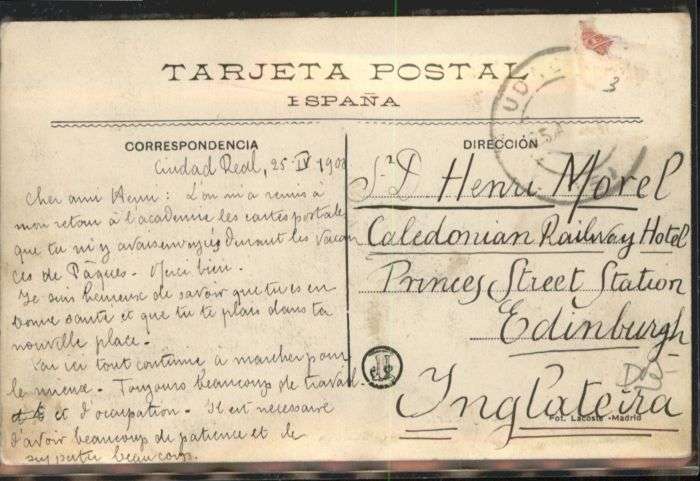 TARJETA POSTAL
ESPAÑA
3
CORRESPONDENCIA
Ciudad Real, 25 IV 1908
Cher ami Henri : L'on m'a remis à
mon retour à l'academie les cartes postales
que tu m'y avais envoyés durant les vacan
ces de Pâques. Merci bien.
Je suis heureux de savoir que tu es en
bonne santé et que tu te plais dans ta
nouvelle place.
Par ici tout continue à marcher pour
le mieux. Toujours beaucoup de travail
et d'occupation. Il est necessaire
d'avoir beaucoup de patience et de
supporter beaucoup.
DIRECCIÓN
Sr D Henri Morel
Caledonian Railway Hotel
Princes Street Station
Edinburgh
Inglaterra
Fot. Lacoste - Madrid